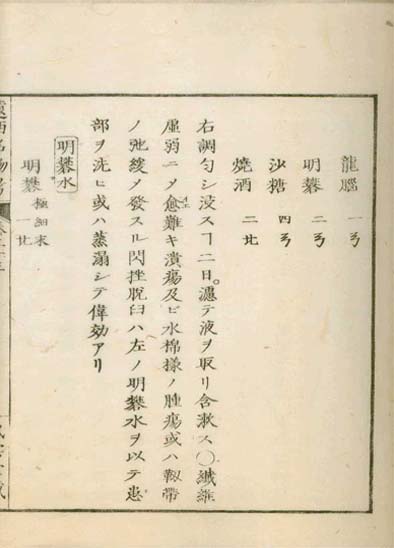 龍腦 一ヲ
明礬 二ヲ
沙糖 四ヲ
燒酒 二
右調匀シ浸スヿ二日。濾テ液ヲ取リ含漱ス〇纎維
虛弱ニメ愈難キ潰瘍及ビ水棉樣ノ腫瘍或ハ靱帶
ノ弛緩メ發スル閃挫脫臼ハ左ノ明礬水ヲ以テ患
部ヲ洗ヒ或ハ蒸溻シテ偉効アリ
明礬水
明礬 極細末 一